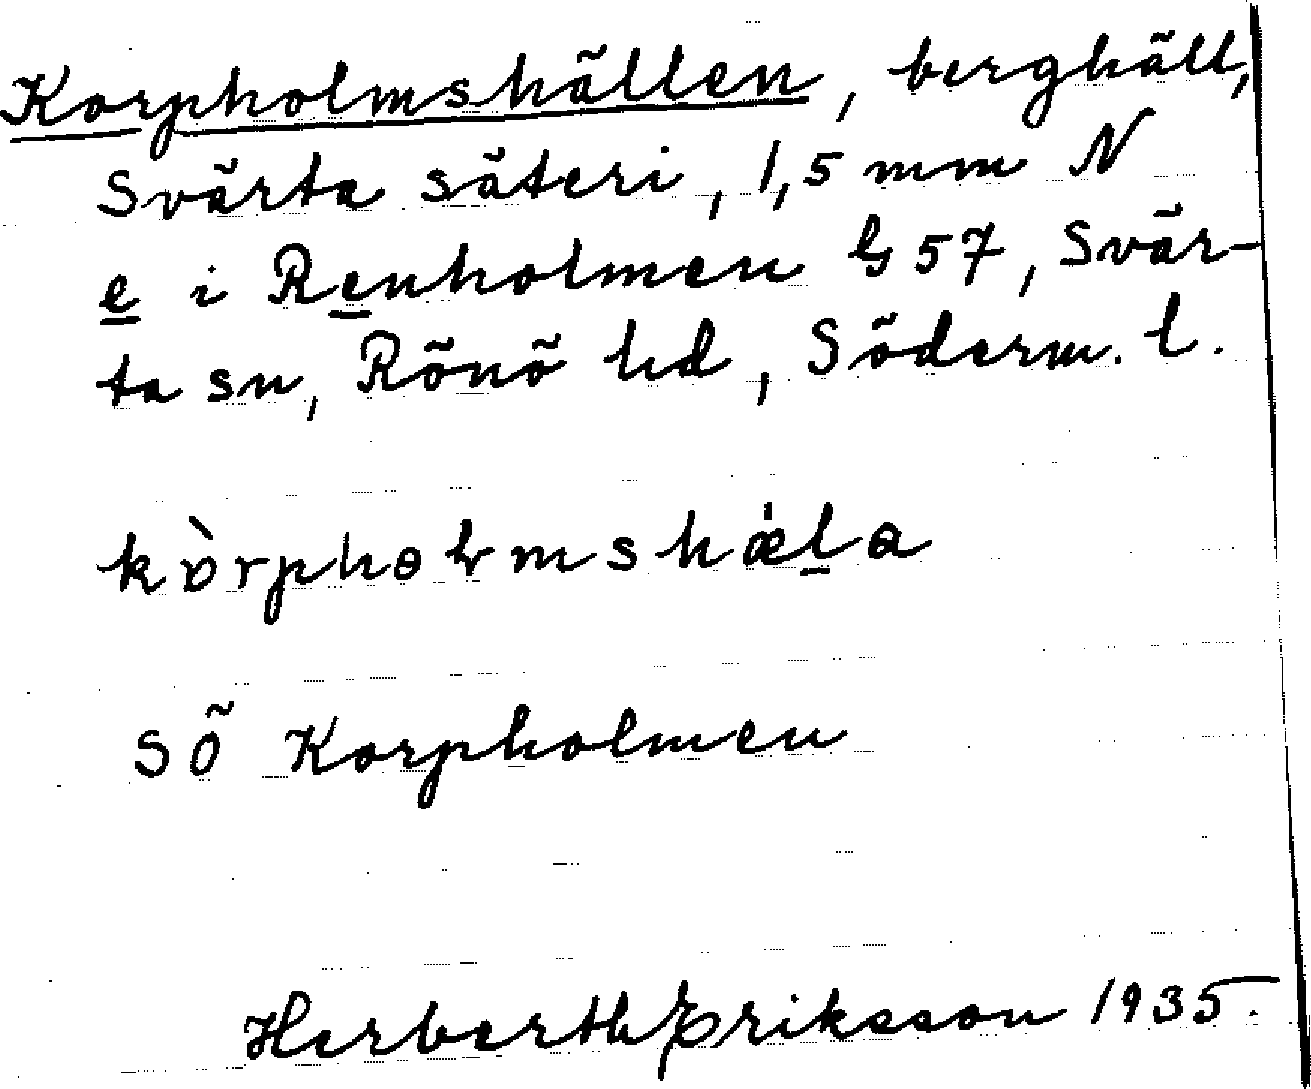 Korpholmshällen, berghäll,
Svärta säteri, 1,5 mm N
e i Renholmen G 57, Svär-
ta sn, Rönö hd, Söderm. l.
kòrpholmshæla
SÖ Korpholmen
Herberth Eriksson 1935.